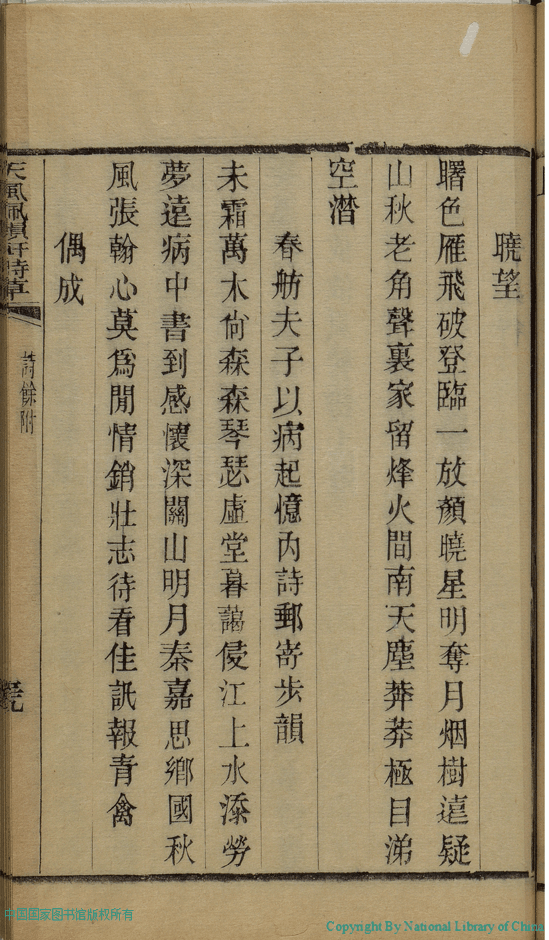 曉望
曙色雁飛破登臨一放顏曉星明奪月烟樹遠疑
山秋老角聲裏家留烽火間南天塵莽莽極目涕
空潸
春舫夫子以病起憶內詩郵寄步韻
未霜萬木尙森森琴瑟虛堂暮藹侵江上水添勞
夢遠病中書到感懷深關山明月秦嘉思鄉國秋
風張翰心莫爲閒情銷壯志待看佳訊報青禽
偶成
天風佩韻軒詩草
詩餘附
中国国家图书馆版权所有
Copyright By National Library of China